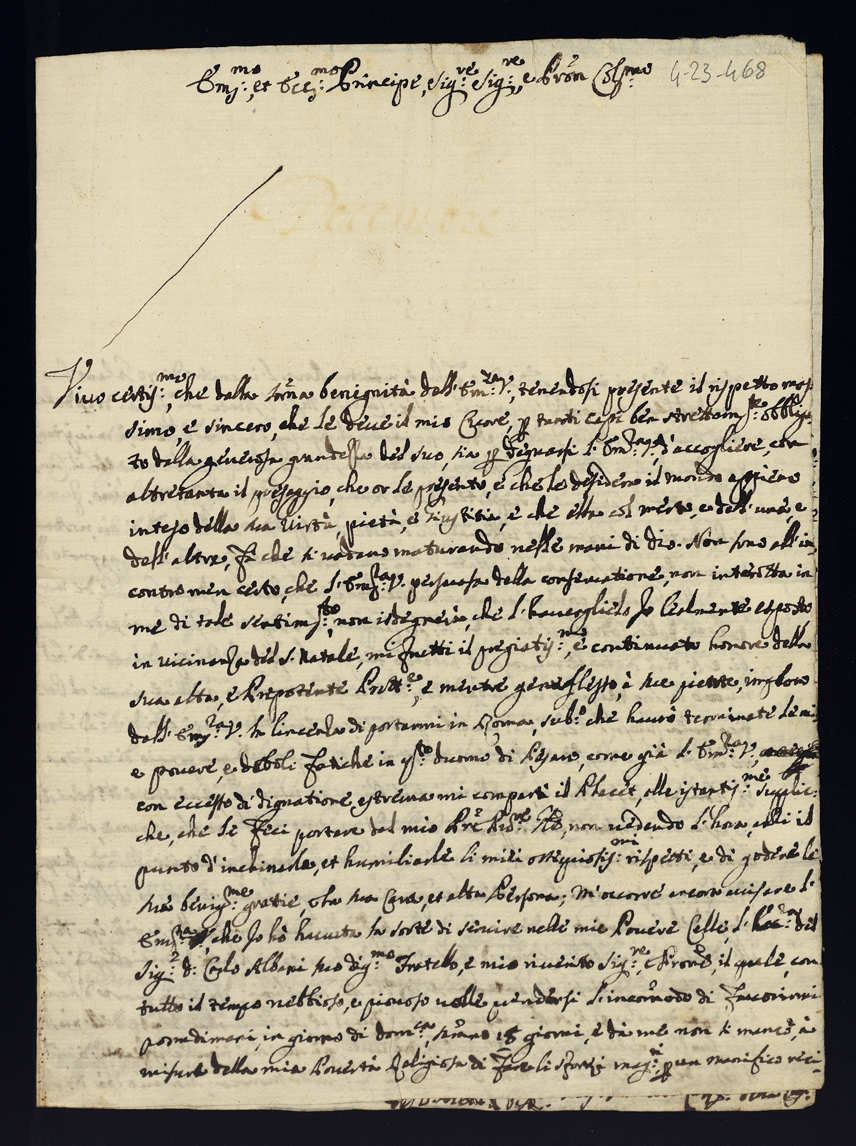 Em:mo et Ecc:mo Principe, Sig:re Sig:re, e Pron Col:mo 4-23-468
Decembre
Vivo certis:me, che dalla somma benignità dell'Em:za V., tenendosi presente il rispetto mas
simo, e sincero, che le deve il mio Cuore, p tanti capi ben strettam:te obbliga
to dalla generosa grandezza del suo, sia p degnarsi l'Em:za V. d'accogliere, con
altretanta il presaggio, che or le presento, e che le desidera il mondo appieno
inteso della sua Virtù, pietà, e Giustitia, e che ella col merto, e dell'une, e
dell'altre, fà che si vadano maturando nelle mani di dio. Non sono all'in
contro men certo, che l'Em:za V. persuasa della conservatione, non interotta in
me di tale sentim:to, non isdegnerà, che l'havergliele Io lealmente esposto
in vicinanza del S. Natale, mi frutti il pregiatis:mo, e continuato honore della
sua alta, e Prepotente Prott:e, e mentre genuflesso, à sue piante, imploro
dall'Em:za V. la licenza di portarmi in Roma, sub:o che haverò terminate le mi
e povere, e deboli fatiche in q:sto duomo di Pesaro, come già l'Em:za V.
con eccesso di dignatione estrema mi compartì il Placet, alle istantis:me supplic:
che, che le feci portare dal mio Pre non vedendo l'hora, ed il
punto d'inchinarle, et humiliarle li miei ossequiosis:mi rispetti, e di godere le
sue benig:me gratie, e la sua Cara, et alta Persona; M'occorre ancora avisare l'
Em:za V., che Io hò havuta la sorte di servire nelle mie Povere Celle, l' del
Sig:r D. Carlo Albani suo dig:mo Fratello, e mio riverito Sig:re e Prone, il quale, con
tutto il tempo nebbioso, e piovoso volle prendersi l'incomodo di favorirmi
in giorno di dom:ca, 15 giorni, e dà me non si mancò, à
misura della mia Povertà Religiosa di fare li sforzi mag:ri p un manifico rici-